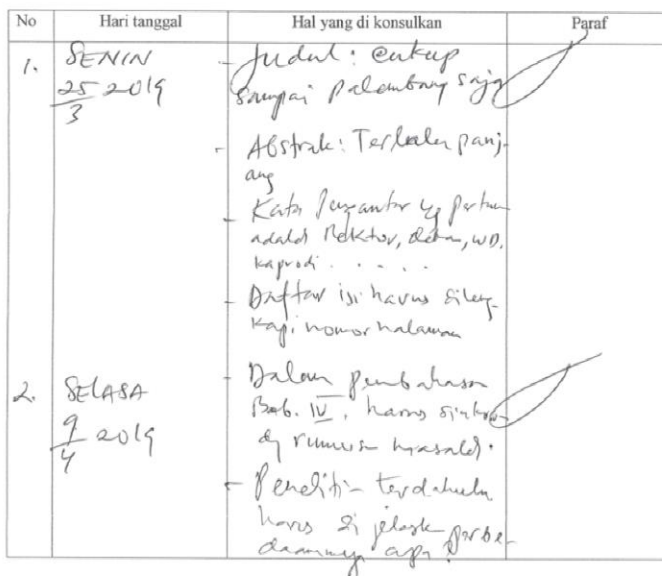 No Hari tanggal Hal yang di konsulkan Paraf
1. SENIN - Judul : Cukup
25 2019 sampai Palembang saja
3
- Abstrak : Terlalu panj-
ang
- Kata Pengantar yg pertama
adalah Rektor, dekan, WD,
kaprodi . . . . .
- Daftar isi harus dileng-
kapi nomor halaman
2. SELASA - Dalam pembahasan
9 2019 Bab. IV, harus sinkron
4 dg rumusan masalah.
- Peneliti- terdahulu
harus di jelask perbe-
daannya apa ?